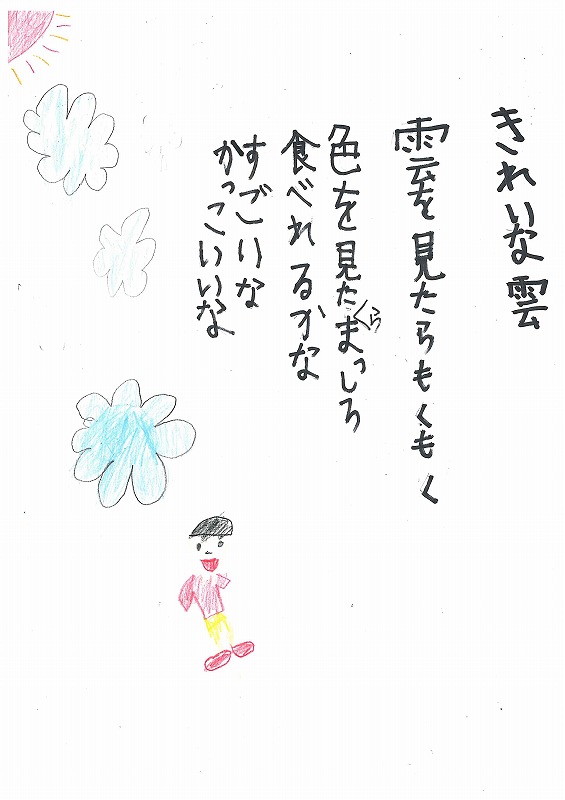 きれいな雲
雲を見たらもくもく
色を見たらまっしろ
食べれるかな
すごいな
かっこいいな